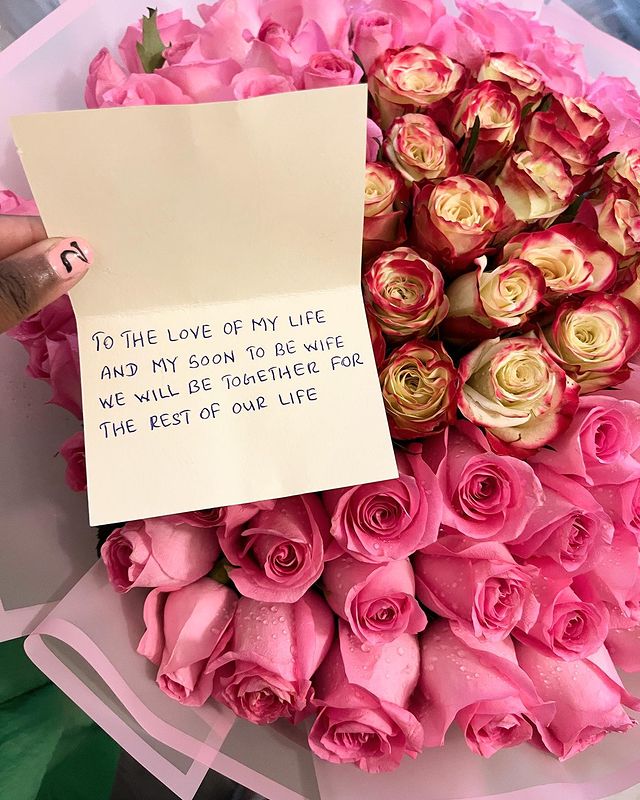 TO THE LOVE OF MY LIFE
AND MY SOON TO BE WIFE
WE WILL BE TOGETHER FOR
THE REST OF OUR LIFE